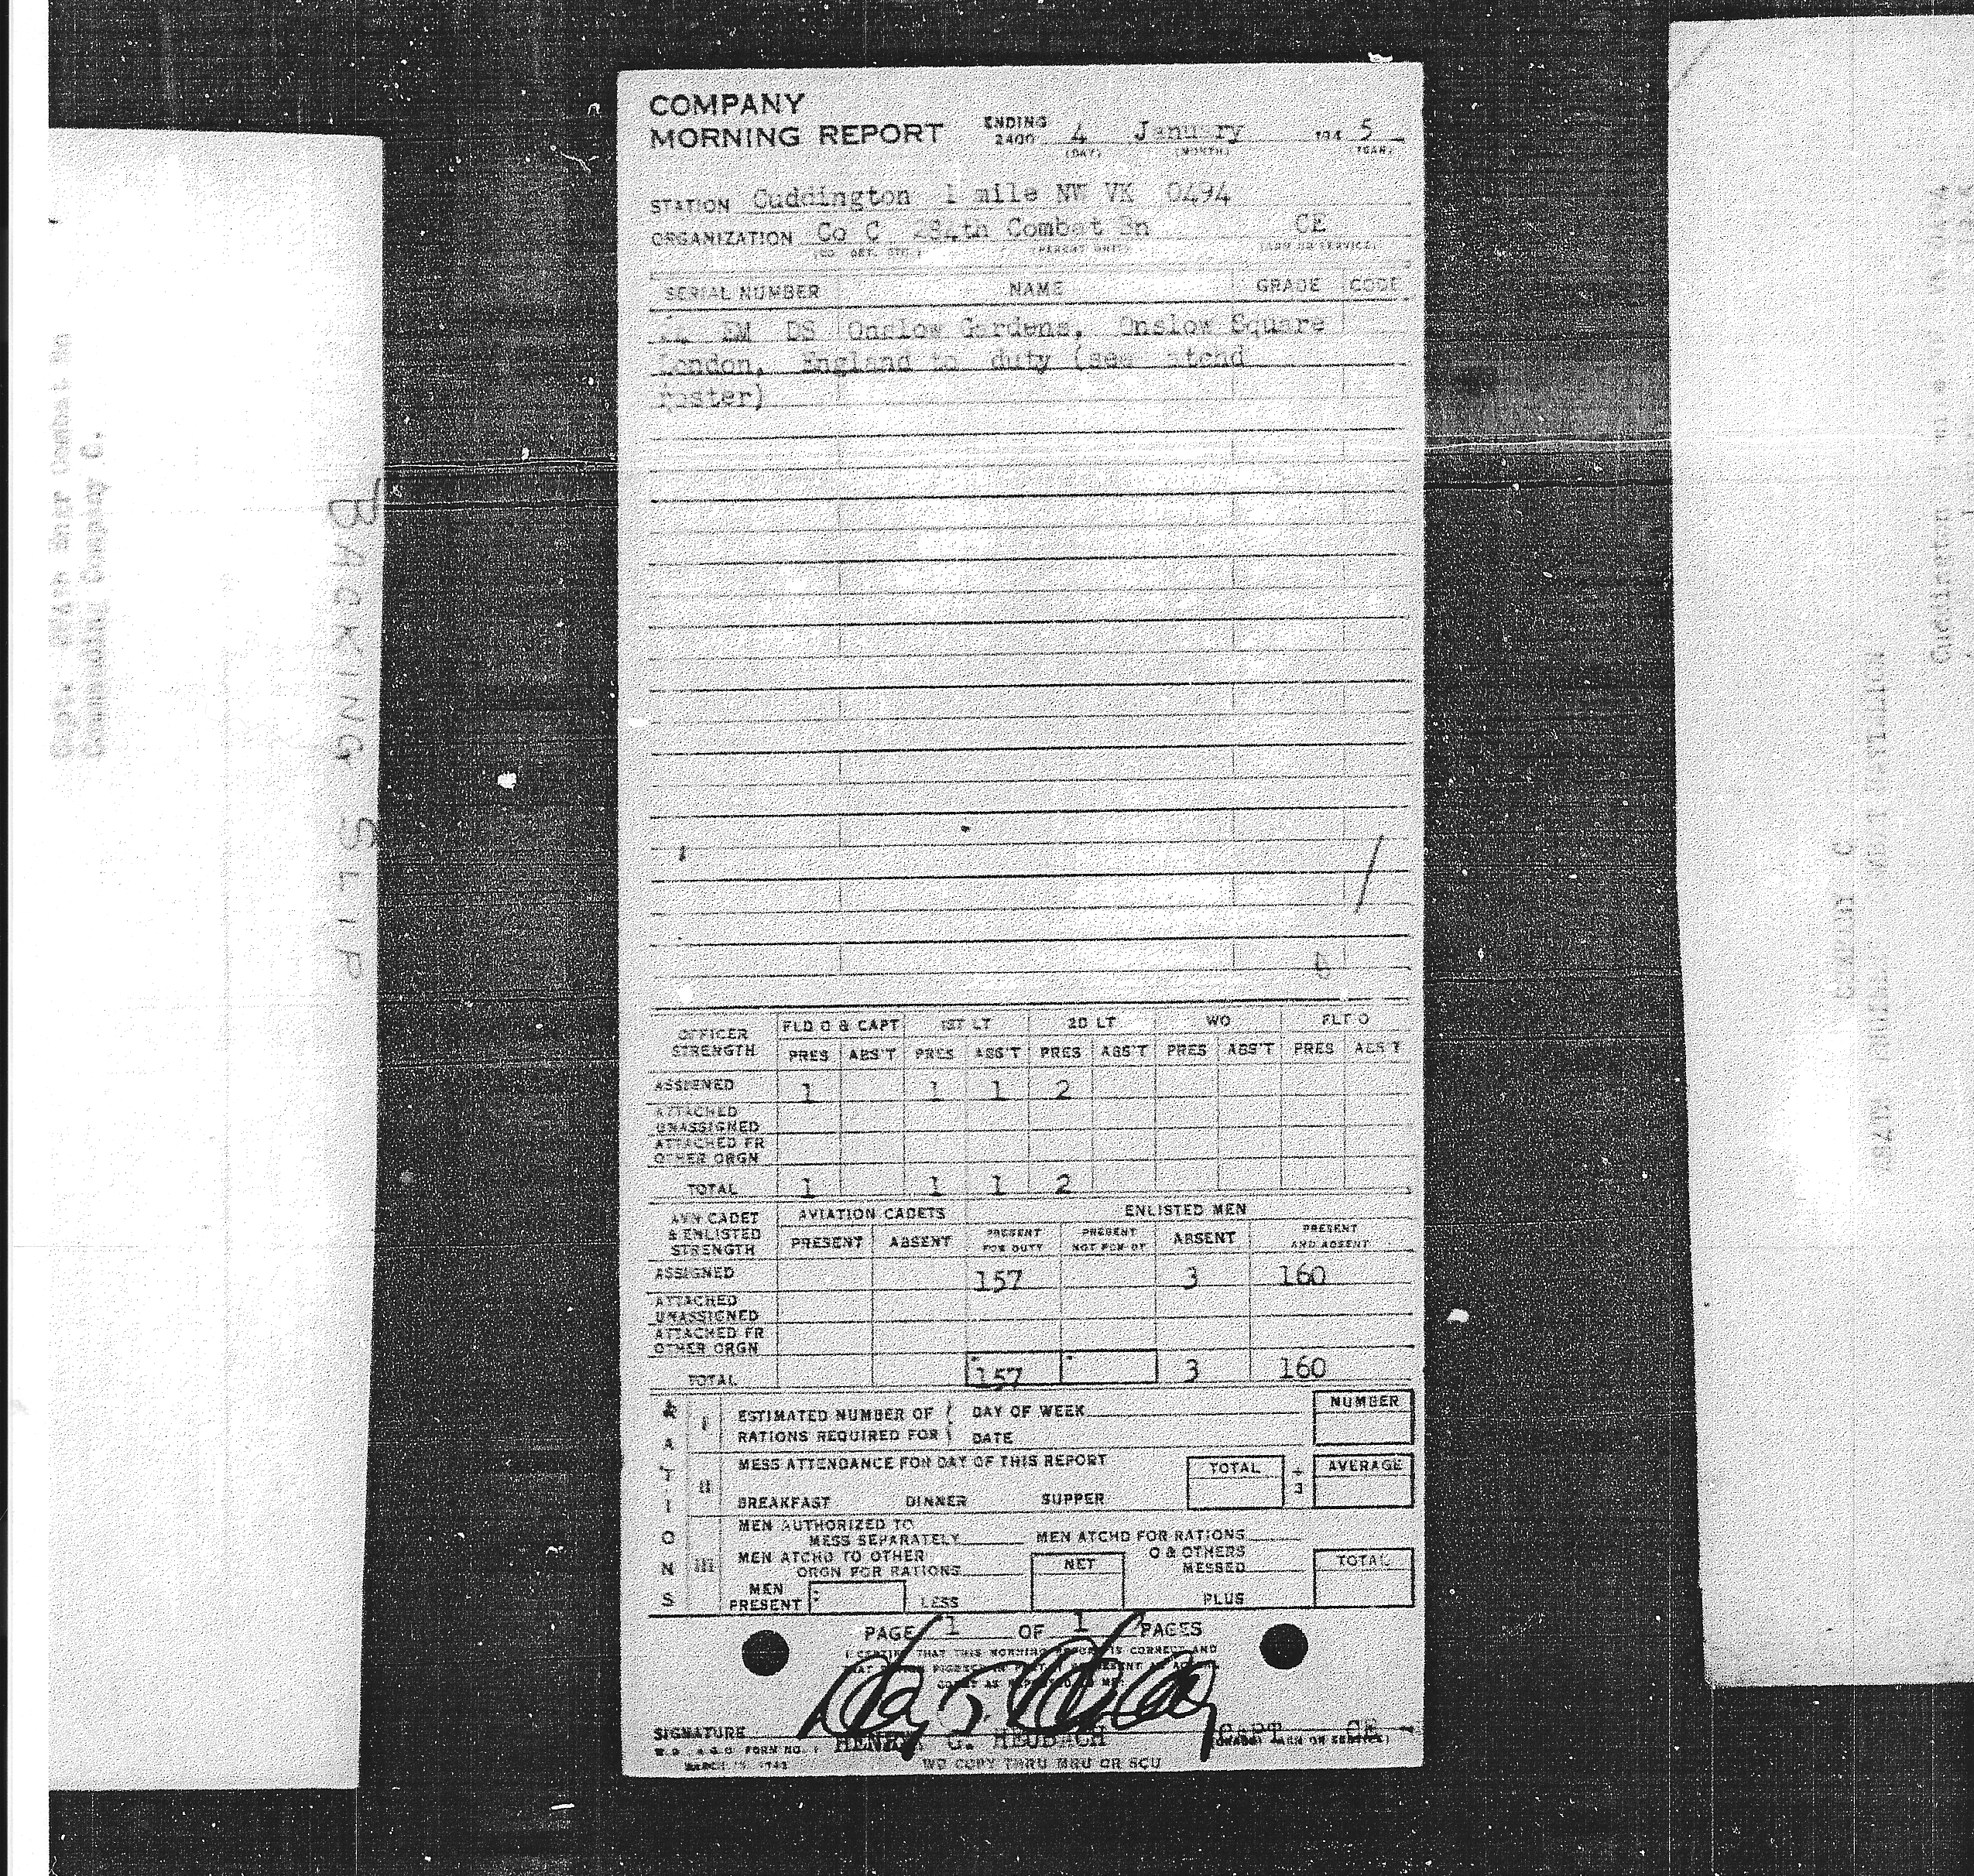 COMPANY
MORNING REPORT ENDING 2400 4 January 194 5
(DAY) (MONTH) (YEAR)
STATION Cuddington 1 mile NW VK 0494
ORGANIZATION Co C 284th Combat Bn CE
(CO. DET. ETC.) (PARENT UNIT) (ARM OR SERVICE)
SERIAL NUMBER NAME GRADE CODE
EM DS Onslow Gardens, Onslow Square
London, England to duty (see atchd
roster)
OFFICER STRENGTH FLD O & CAPT 1ST LT 2D LT WO FLT O
PRES ABS'T PRES ABS'T PRES ABS'T PRES ABS'T PRES ABS'T
ASSIGNED 1 1 1 2
ATTACHED UNASSIGNED
ATTACHED FR OTHER ORGN
TOTAL 1 1 1 2
AVN CADET & ENLISTED STRENGTH AVIATION CADETS ENLISTED MEN
PRESENT ABSENT PRESENT FOR DUTY PRESENT NOT FOR DY ABSENT PRESENT AND ABSENT
ASSIGNED 157 3 160
ATTACHED UNASSIGNED
ATTACHED FR OTHER ORGN
TOTAL 157 3 160
RATIONS
I ESTIMATED NUMBER OF DAY OF WEEK NUMBER
RATIONS REQUIRED FOR DATE
II MESS ATTENDANCE FOR DAY OF THIS REPORT TOTAL ÷ 3 AVERAGE
BREAKFAST DINNER SUPPER
III MEN AUTHORIZED TO
MESS SEPARATELY MEN ATCHD FOR RATIONS
MEN ATCHD TO OTHER NET O & OTHERS TOTAL
ORGN FOR RATIONS MESSED
MEN
PRESENT LESS PLUS
PAGE 1 OF 1 PAGES
I CERTIFY THAT THIS MORNING REPORT IS CORRECT AND
SIGNATURE HENRY G. HEUBACH CAPT CE
W.D., A.G.O. FORM NO. 1 (GRADE) (ARM OR SERVICE)
MARCH 1943 WD COPY THRU MRU OR SCU
BACKING SLIP
Company C.
Cuddington